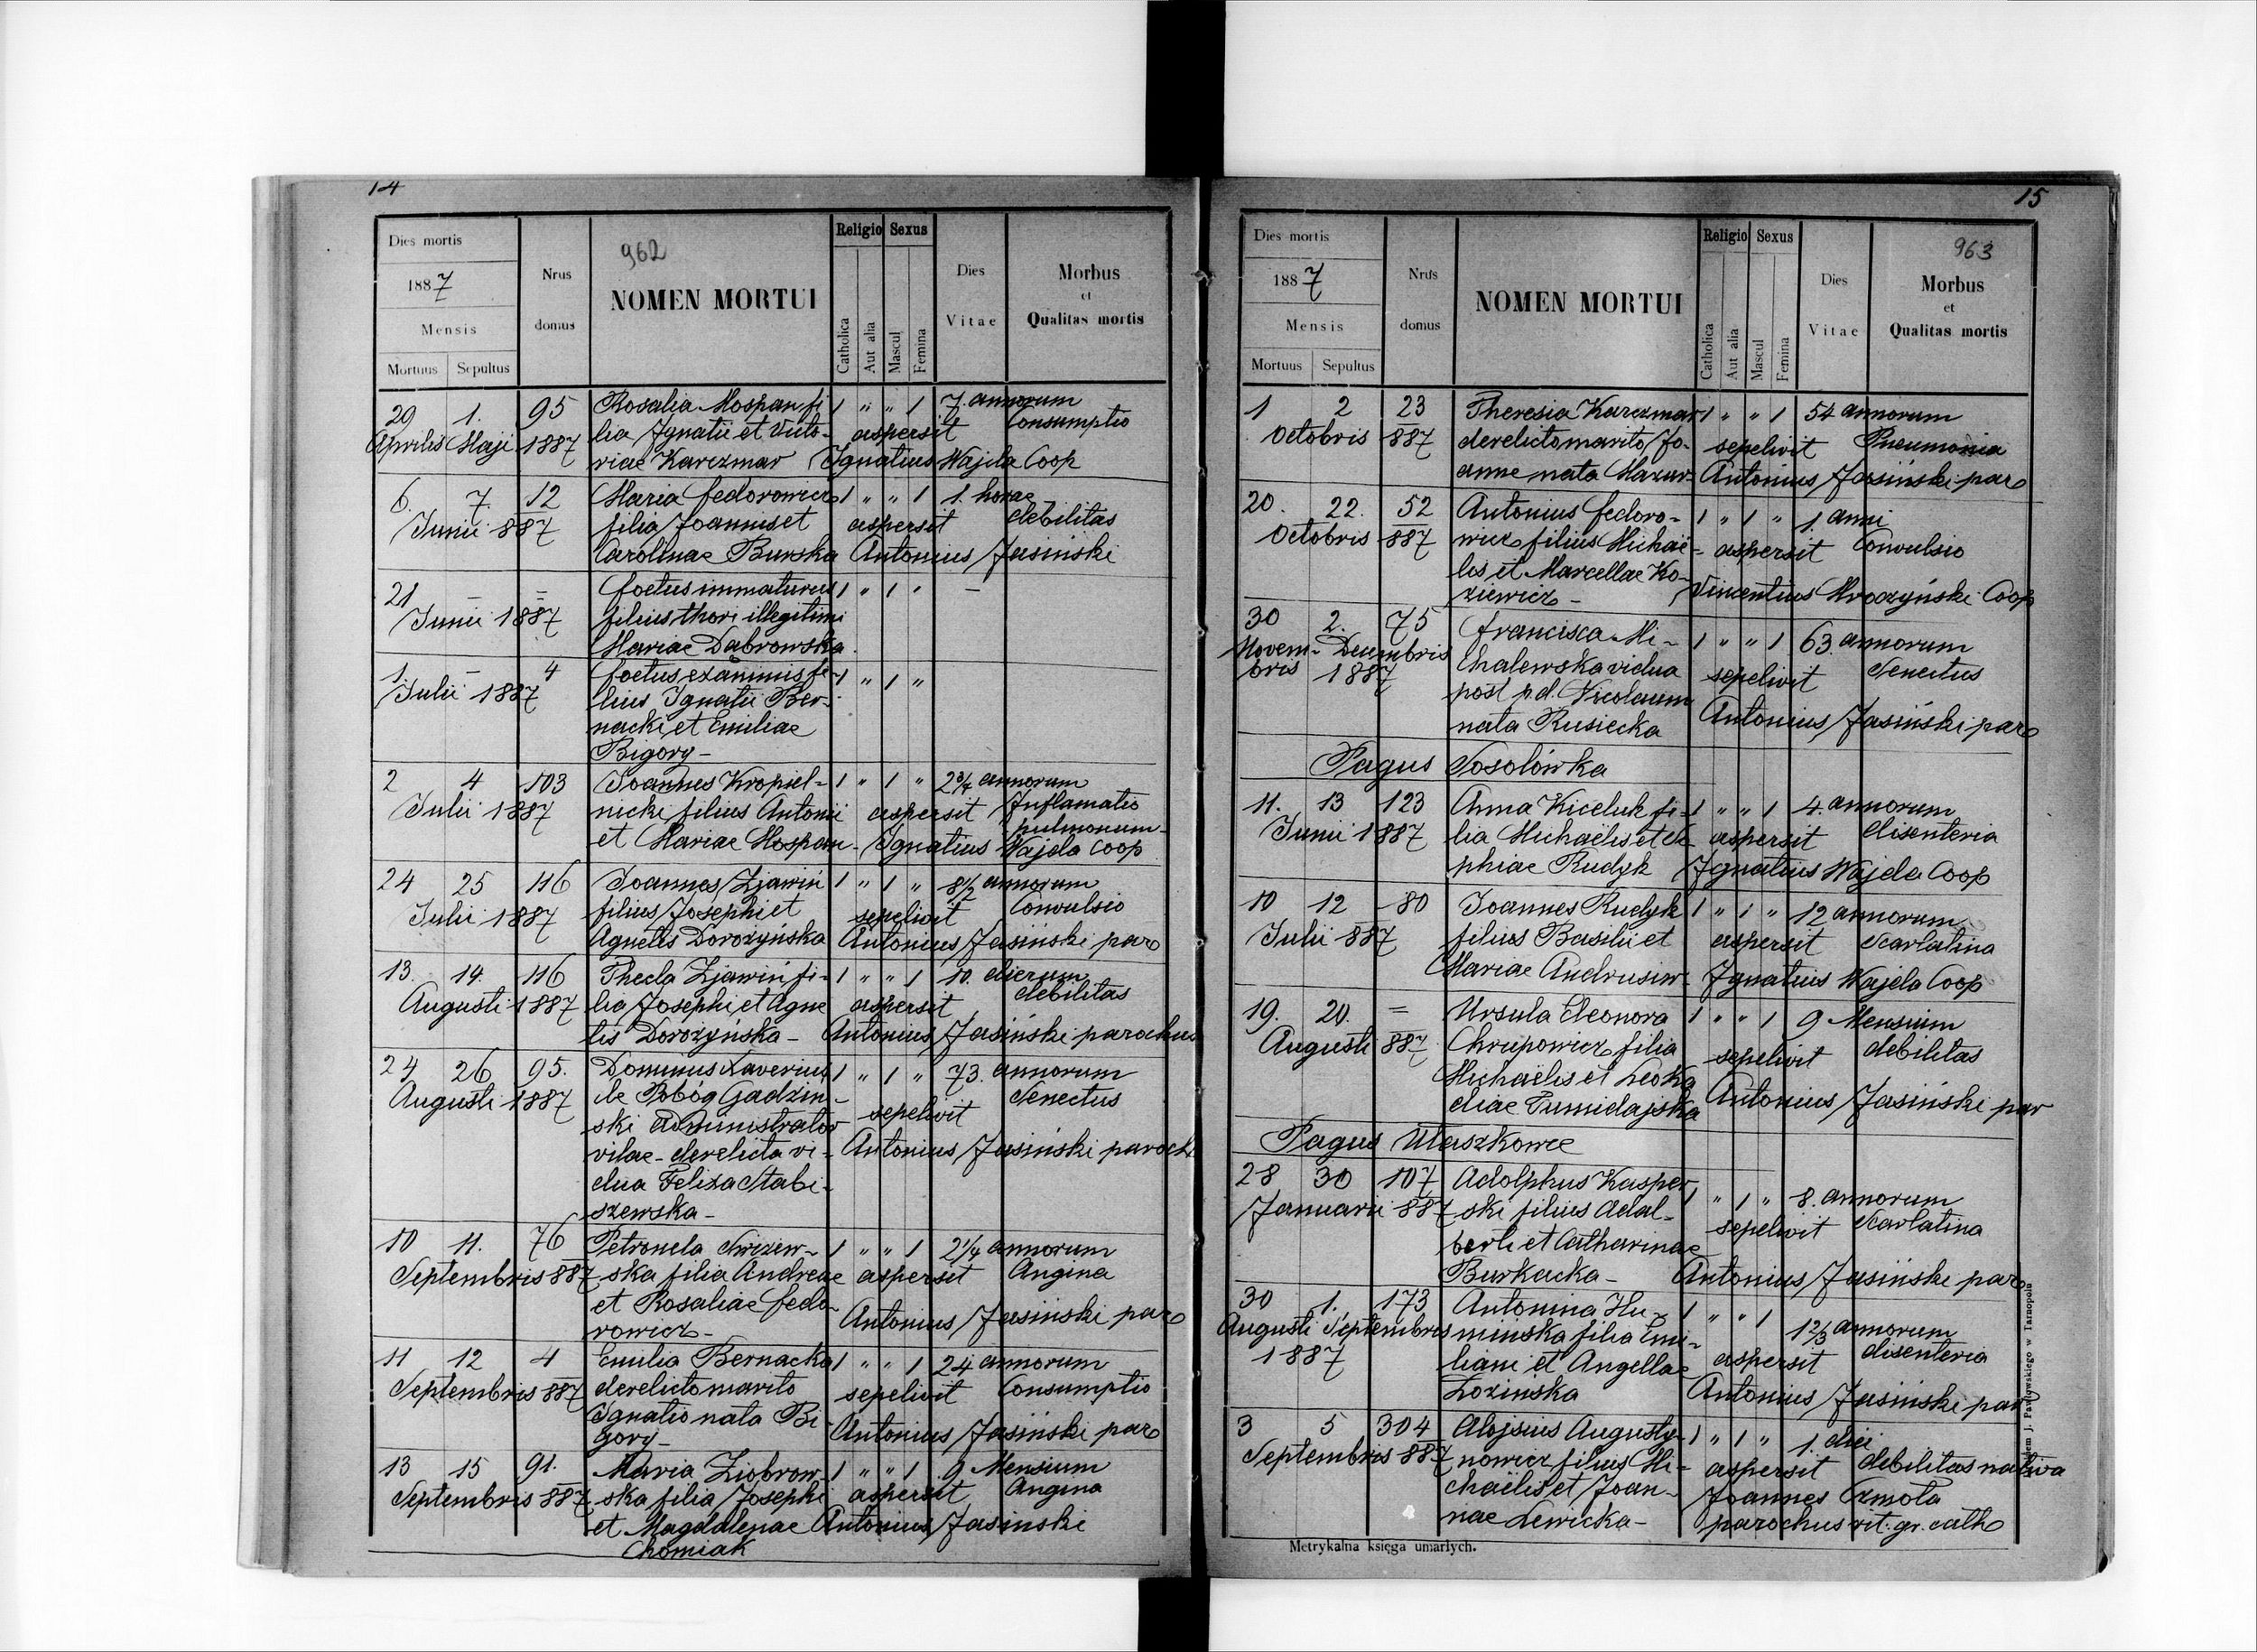 14
Dies mortis
1887
Mensis
Mortuus Sepultus
Nrus domus
962
NOMEN MORTUI
Religio Sexus
Catholica Aut alia Mascul Femina
Dies Vitae
Morbus
et
Qualitas mortis
29 1. 95 Rosalia Mospan fi 1 " " 1 7. annorum
Aprilis Maji 1887 lia Ignatii et Victo- aspersit Consumptio
riae Karczmar Ignatius Wajda Coop
6. 7. 12 Maria Fedorowicz 1 " " 1 1. horae
Junii 887 filia Joannis et aspersit debilitas
Carolinae Burska Antonius Jasiński
21 – = foetus immaturus 1 " 1 " –
Junii 1887 filius thori illegitimi
Mariae Dąbrowska
1 – 4 foetus exanimis fi- 1 " 1 "
Julii 1887 lius Ignatii Ber-
nacki et Emiliae
Bigory –
2 4 103 Joannes Kropiel- 1 " 1 " 2 3/4 annorum
Julii 1887 nicki filius Antonii aspersit Inflamatio
pulmonum
et Mariae Mospan – Ignatius Wajda Coop
24 25 116 Joannes Zjawiń 1 " 1 " 8 1/2 annorum
Julii 1887 filius Josephi et sepelivit Convulsio
Agnetis Dorożyńska Antonius Jasiński par
13. 14. 116 Thecla Zjawiń fi- 1 " " 1 10. dierum
Augusti 1887 lia Josephi et Agne aspersit debilitas
tis Dorożyńska – Antonius Jasiński parochus
24 26 95. Dominus Xaverius 1 " 1 " 73. annorum
Augusti 1887 de Pobóg Gadzin- sepelivit Senectus
ski Administrator
vilae – derelicta vi- Antonius Jasiński paroch
dua Feliza Stabi-
szewska –
10 11. 76 Petronela 1 " " 1 2 1/4 annorum
Septembris 887 ska filia Andreae aspersit Angina
et Rosaliae Fedo- Antonius Jasiński par
rowicz –
11 12 4 Emilia Bernacka 1 " " 1 24 annorum
Septembris 887 derelicto marito sepelivit Consumptio
Ignatio nata Bi- Antonius Jasiński par
gory –
13 15 91. Maria Ziobrow- 1 " " 1 9 Mensium
Septembris 887 ska filia Josephi aspersit Angina
et Magdalenae Antonius Jasinski
Chomiak
15
Dies mortis
1887
Mensis
Mortuus Sepultus
Nrus domus
NOMEN MORTUI
Religio Sexus
Catholica Aut alia Mascul Femina
Dies Vitae
963
Morbus
et
Qualitas mortis
1 2 23 Theresia Karczmar 1 " " 1 54 annorum
Octobris 887 derelicto marito Jo- sepelivit Pneumonia
anne nata Mazur – Antonius Jasiński par
20. 22. 52 Antonius Fedoro- 1 " 1 " 1. anni
Octobris 887 wicz filius Michaë- aspersit Convulsio
lis et Marcellae Ko- Vincentius Mroczyński Coop
ziewicz –
30 2. 75 Francisca Mi- 1 " " 1 63. annorum
Novem- Decembris chalewska vidua sepelivit Senectus
bris 1887 post p.d. Nicolaum
nata Rusiecka Antonius Jasiński par
Pagus Sosolówka
11. 13 123 Anna Kiceluk fi- 1 " " 1 4. annorum
Junii 1887 lia Michaëlis et Se- aspersit disenteria
phiae Rudyk Ignatius Wajda Coop
10 12 80 Joannes Rudyk 1 " 1 " 12 annorum
Julii 887 filius Basilii et aspersit Scarlatina
Mariae Andrusiw – Ignatius Wajda Coop
19. 20. = Ursula Eleonora 1 " " 1 9 Mensium
Augusti 887 Chrupowicz filia sepelivit debilitas
Michaëlis et Leoka
diae Tumidajska Antonius Jasiński par
Pagus Ułaszkowce
28 30 107 Adolphus Kasper 1 " 1 " 8. annorum
Januarii 887 ski filius Adal- sepelivit Scarlatina
berti et Catharinae
Burkacka – Antonius Jasiński par
30 1. 173 Antonina Hu- 1 " " 1 1 2/3 annorum
Augusti Septembris mińska filia Emi- aspersit disenteria
1887 liani et Angellae
Łozinska Antonius Jasiński par
3 5 304 Alojsius Augusty- 1 " 1 " 1. diei
Septembris 887 nowicz filius Mi- aspersit debilitas nativa
chaëlis et Joan- Joannes Czmoła
nae Lewicka – parochus rit. gr. cath
Metrykalna księga umarłych.
J. Pawłowskiego w Tarnopolu